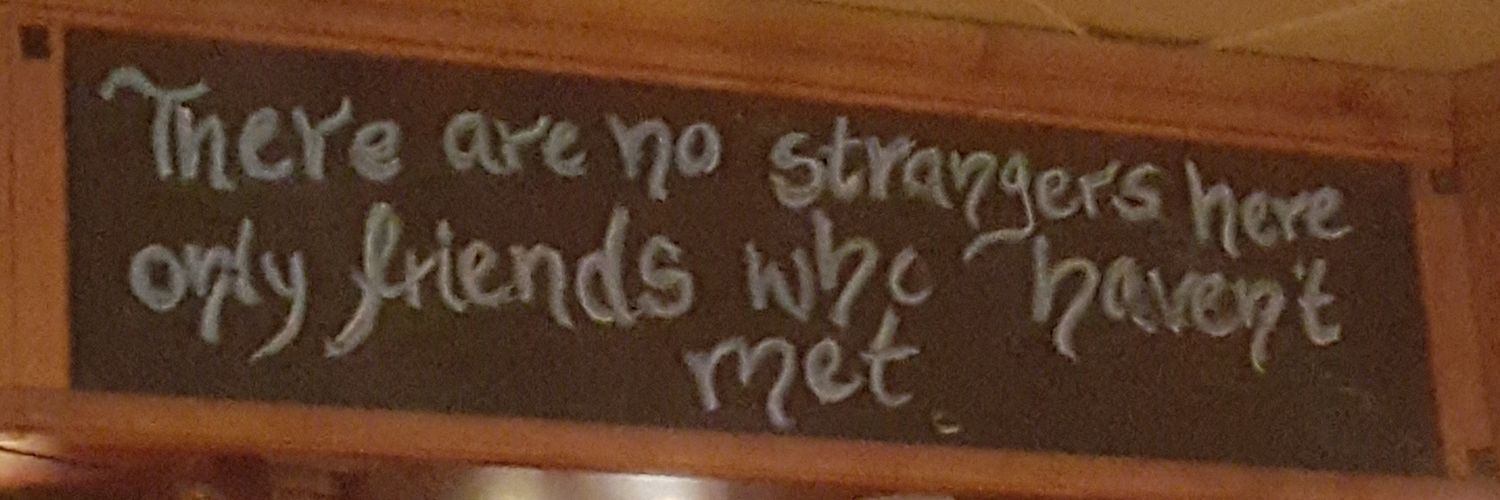 There are no strangers here
only friends who haven't
met.